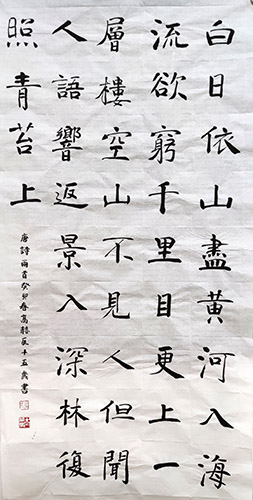 白日依山盡黃河入海
流欲窮千里目更上一
層樓空山不見人但聞
人語響返景入深林復
照青苔上
唐詩兩首癸卯春高赫辰十五歲書